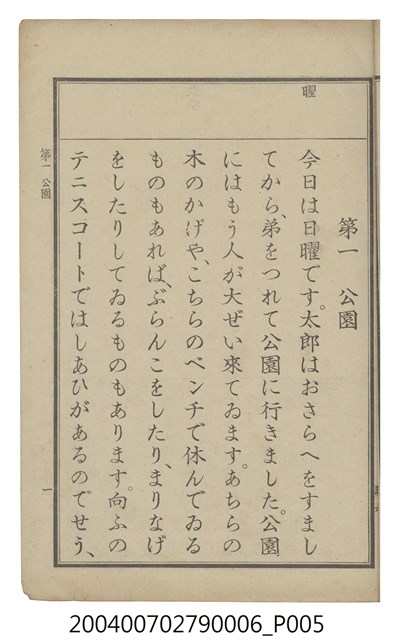 曜
第一 公園
今日は日曜です。太郎はおさらへをすまし
てから、弟をつれて公園に行きました。公園
にはもう人が大ぜい來てゐます。あちらの
木のかげや、こちらのベンチで休んでゐる
ものもあれば、ぶらんこをしたり、まりなげ
をしたりしてゐるものもあります。向ふの
テニスコートではしあひがあるのでせう、
第一 公園
一
200400702790006_P005